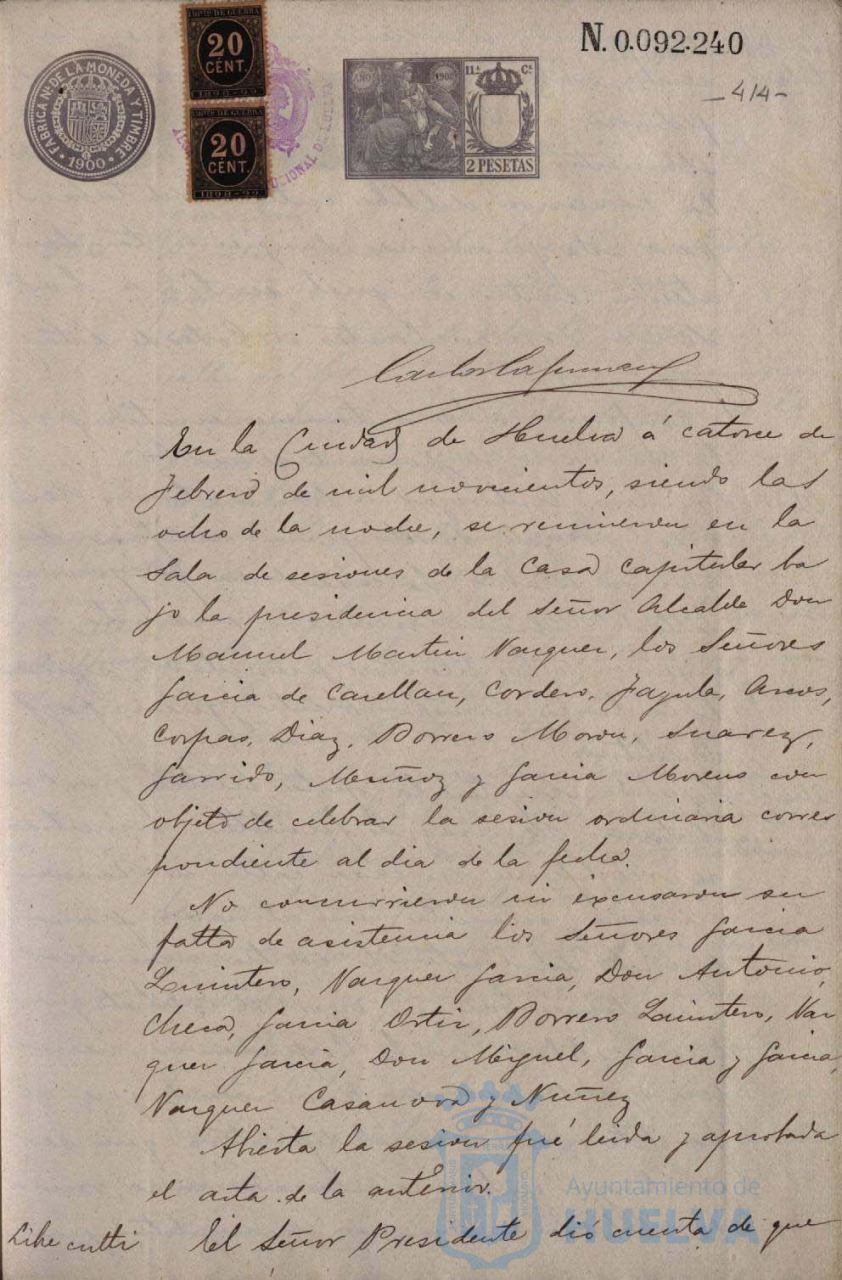 N. 0.092.240
-414-
FABRICA Nal DE LA MONEDA Y TIMBRE
1900
IMPTO DE GUERRA
20
CENT.
1898-99
IMPTO DE GUERRA
20
CENT.
1898-99
AÑO 1900
11.ª Cª
2 PESETAS
En la Ciudad de Huelva á catorce de
Febrero de mil novecientos, siendo las
ocho de la noche, se reunieron en la
Sala de sesiones de la Casa Capitular ba
jo la presidencia del Señor Alcalde Don
Manuel Martin Vazquez, los Señores
Garcia de Casellan, Cordero, Jazula, Arcos,
Corpas, Diaz, Borrero Moron, Suarez,
Garrido, Muñoz y Garcia Moreno con
objeto de celebrar la sesion ordinaria corres
pondiente al dia de la fecha.
No concurrieron ni excusaron su
falta de asistencia los Señores Garcia
Quintero, Vazquez Garcia, Don Antonio,
Checa, Garcia Ortiz, Borrero Quintero, Vaz
quez Garcia, Don Miguel, Garcia y Garcia,
Vazquez Casanova y Nuñez
Abierta la sesion fué leida y aprobada
el acta de la anterior.
El Señor Presidente dió cuenta de que
Ayuntamiento de
HUELVA